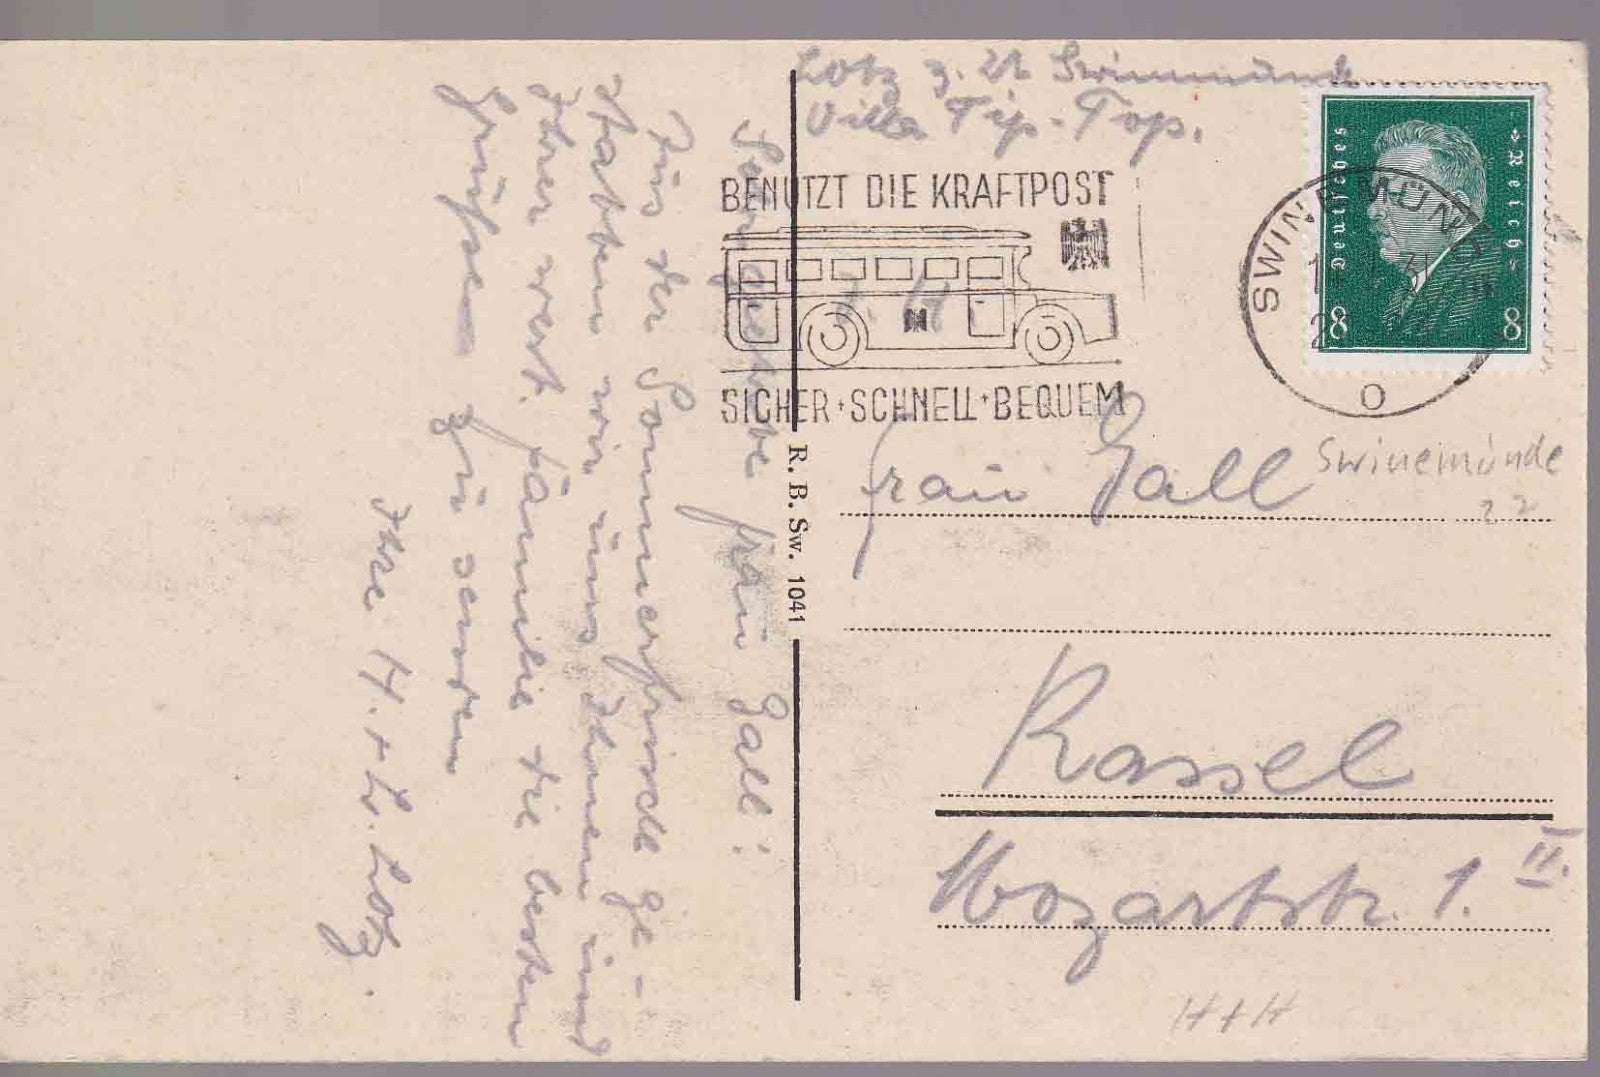 Lotz z. Zt Swinemünde
Villa Tip-Top.
BENUTZT DIE KRAFTPOST
SICHER + SCHNELL + BEQUEM
SWINEMÜNDE
o
Deutsches Reich
8 8
Sehr geehrte Frau Gall!
Aus der Sommerfrische ge-
statten wir uns Ihnen und
Ihrer wert. Familie die besten
Grüße zu senden
Ihre H. + L. Lotz.
R. B. Sw. 1041
Frau Gall
Swinemünde
22
Kassel
Mozartstr. 1. II.
H+H